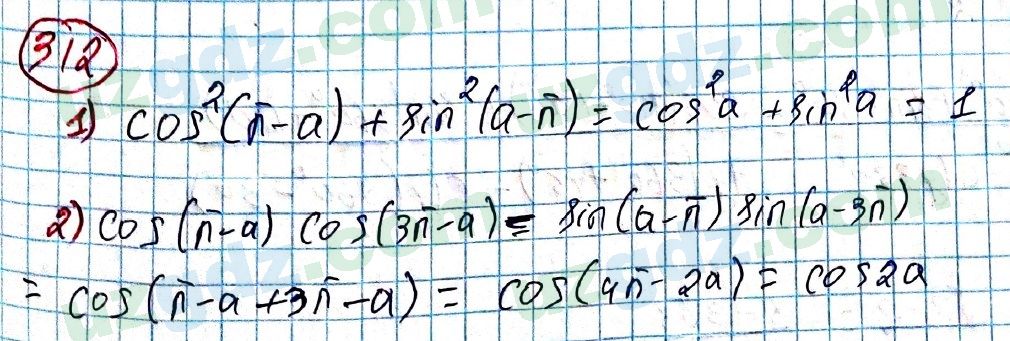 312
1) cos²(π-a) + sin²(a-π) = cos²a + sin²a = 1
2) cos(π-a) cos(3π-a) = sin(a-π) sin(a-3π)
= cos(π-a+3π-a) = cos(4π-2a) = cos2a